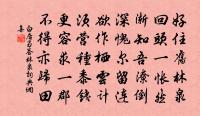 好住舊林泉
回頭一悵然
漸知吾潦倒
深愧爾留連
欲作棲雲計
須營種黍錢
更容求一郡
不得亦歸田
白居易答林泉詞典網
集